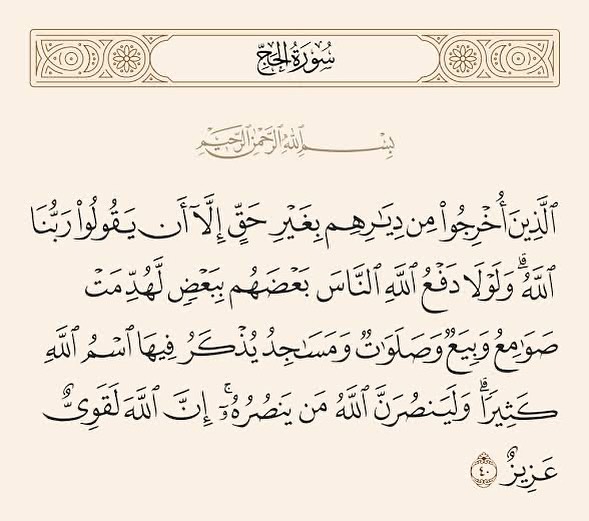 سُورَةُ الحَجِّ
بِسْمِ ٱللَّهِ ٱلرَّحْمَٰنِ ٱلرَّحِيمِ
ٱلَّذِينَ أُخْرِجُوا۟ مِن دِيَٰرِهِم بِغَيْرِ حَقٍّ إِلَّآ أَن يَقُولُوا۟ رَبُّنَا
ٱللَّهُ ۗ وَلَوْلَا دَفْعُ ٱللَّهِ ٱلنَّاسَ بَعْضَهُم بِبَعْضٍ لَّهُدِّمَتْ
صَوَٰمِعُ وَبِيَعٌ وَصَلَوَٰتٌ وَمَسَٰجِدُ يُذْكَرُ فِيهَا ٱسْمُ ٱللَّهِ
كَثِيرًا ۗ وَلَيَنصُرَنَّ ٱللَّهُ مَن يَنصُرُهُۥٓ ۚ إِنَّ ٱللَّهَ لَقَوِىٌّ
عَزِيزٌ ٤٠